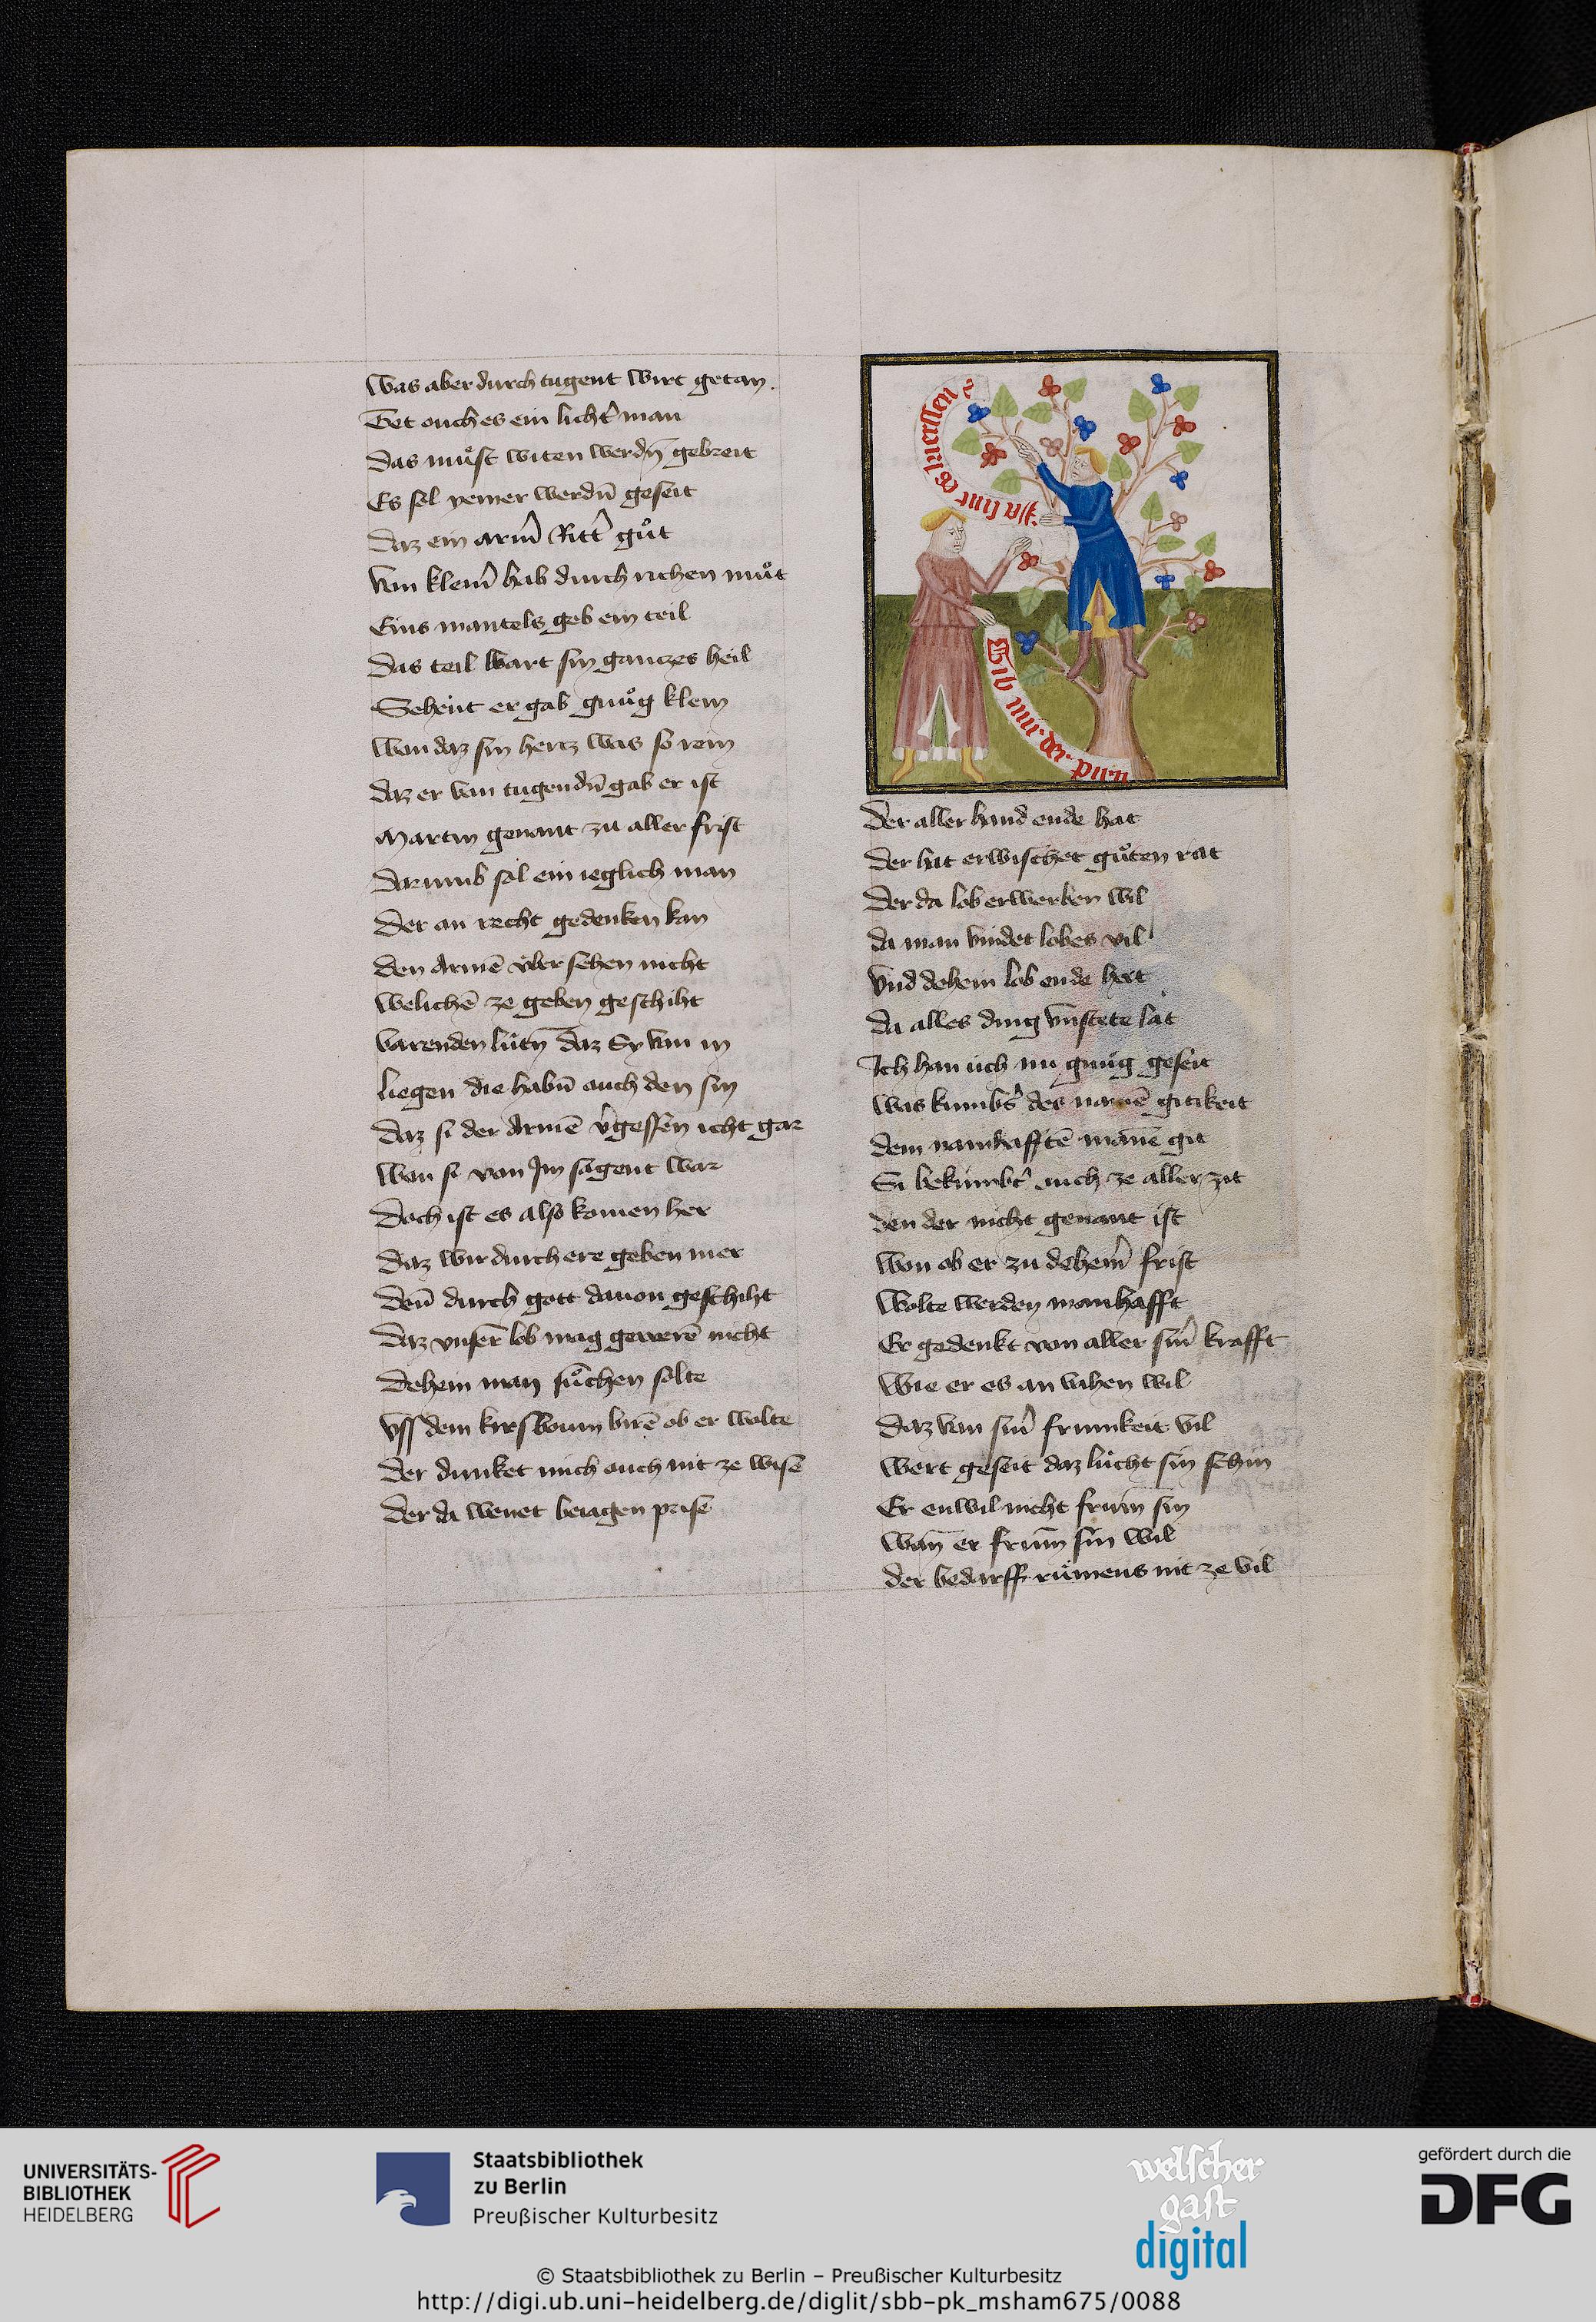 Was aber durch tugent wirt getan.
Tet ouch es ein licht̛ man
Das muͦst witen werdn̄ gebreit
Es sol yemer werdn̄ geseit
Daz ein arm̛ Ritt̛ guͦt
Von klein̛ hab durch richen muͦt
Eins mantels geb ein teil
Das teil wart sin ganczes heil
Sehent er gab gnuͦg klein
Won daz sin hertz was so rein
Daz er van tugendn̄ gab er ist
Martin genant zu aller frist
Darumb sol ein ieglich man
Der an recht gedenken kan
Den Armē übersehen nicht
Welichē ze geben geschiht
Varenden lütn̄ daz Sy van in
liegen die habn̄ auch den sin
Daz si der Armē v̛gessen icht gar
Won si von Im sagent war
Doch ist es also komen her
Daz wir durch ere geben mer
Den̄ durch gott dauon geschiht
Daz vnser lob mag gewerē nicht
Dehein man suͦchen solte
Vss dem kirsboum birē ob er wolte
Der dunket mich ouch nit ze wisē
Der da wenet beiagen prise
Ja sint es kuerssen
Gib mir der pirn
Der aller hand ende hat
Der hat erwischet guͦten rat
Der da lob erwerben wil
da man vindet lobes vil
Vnd dehein lob ende het
Da alles ding vnstete lat
Ich han üch nu gnuͦg geseit
Was kumb̛s des namē gitikeit
dem namhafftē manē git
Si bekümb̛t ouch ze aller zit
den der nicht genant ist
Won ob er zu dehein̛ frist
Wolte werden manhafft
Er gedenkt von aller sin̛ krafft
Wie er es an vahen wil
Daz van sin̛ frumkeit vil
Wert geseit daz lücht sin schin
Er enwil nicht frum̄ sin
Wan̄ er frum̄ sin wil
der bedarff rümens nit ze vil
UNIVERSITÄTS-
BIBLIOTHEK
HEIDELBERG
Staatsbibliothek
zu Berlin
Preußischer Kulturbesitz
welscher
gast
digital
gefördert durch die
DFG
© Staatsbibliothek zu Berlin – Preußischer Kulturbesitz
http://digi.ub.uni-heidelberg.de/diglit/sbb-pk_msham675/0088